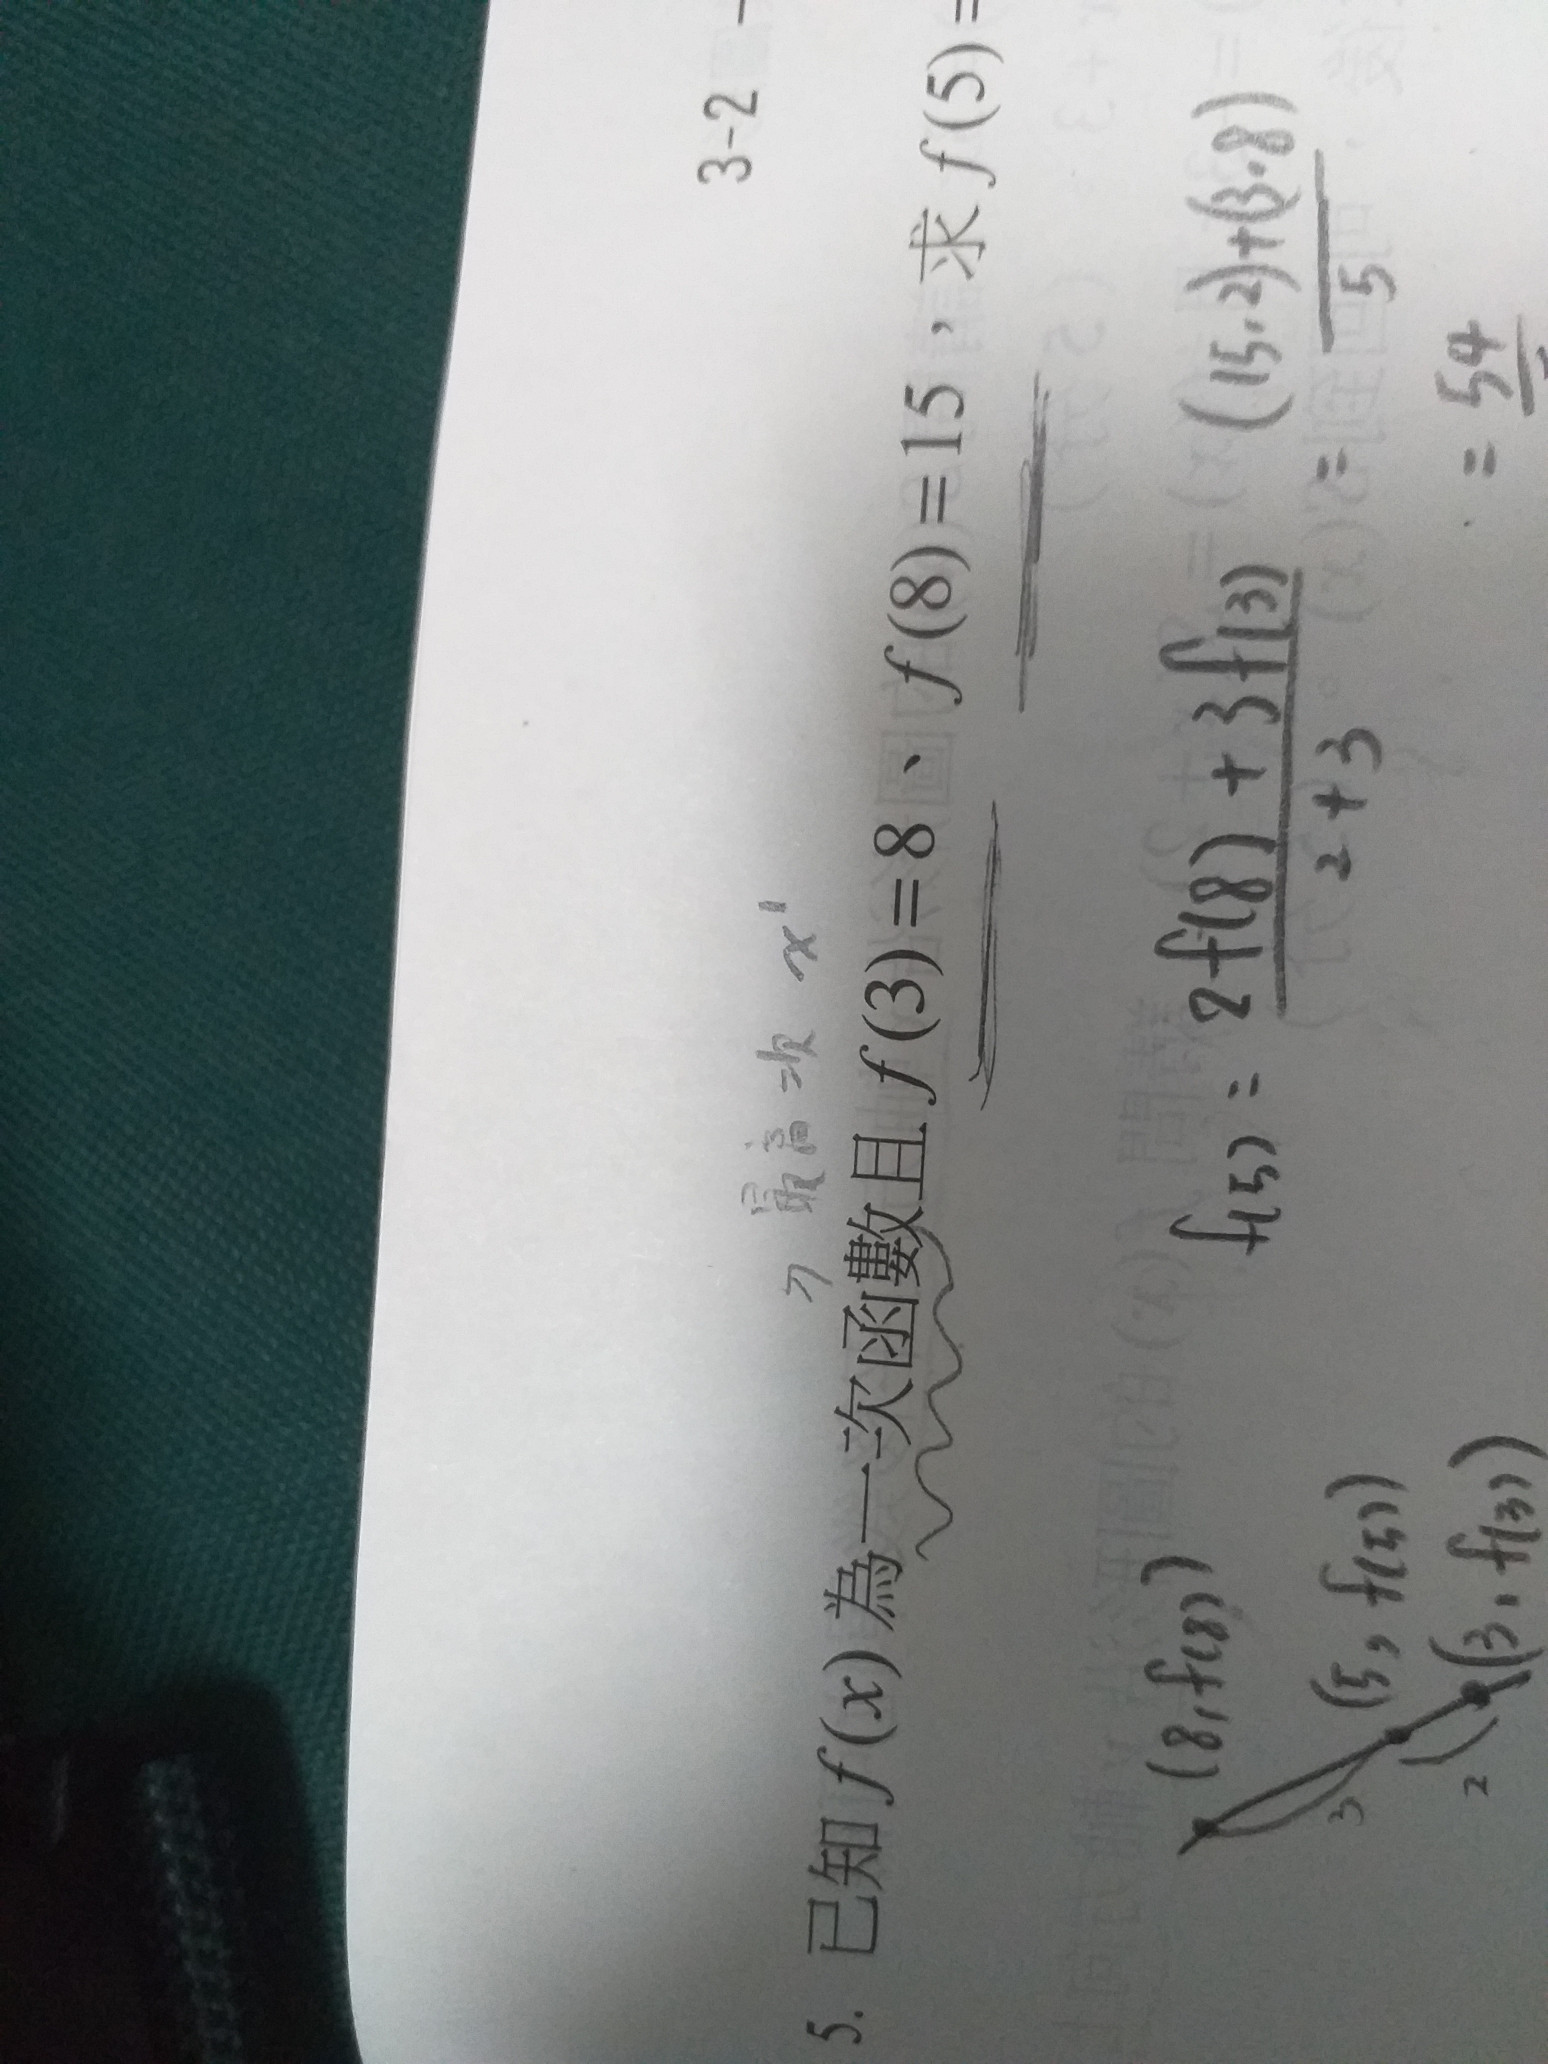 3-2
最高二次 x¹
5. 已知 f(x) 為一次函數且 f(3)=8、f(8)=15,求 f(5)=
(8, f(8))
f(5) = 2f(8) + 3f(3) / 2+3 = (15·2)+(3·8) / 5
(5, f(5))
3
= 54
(3, f(3))
2